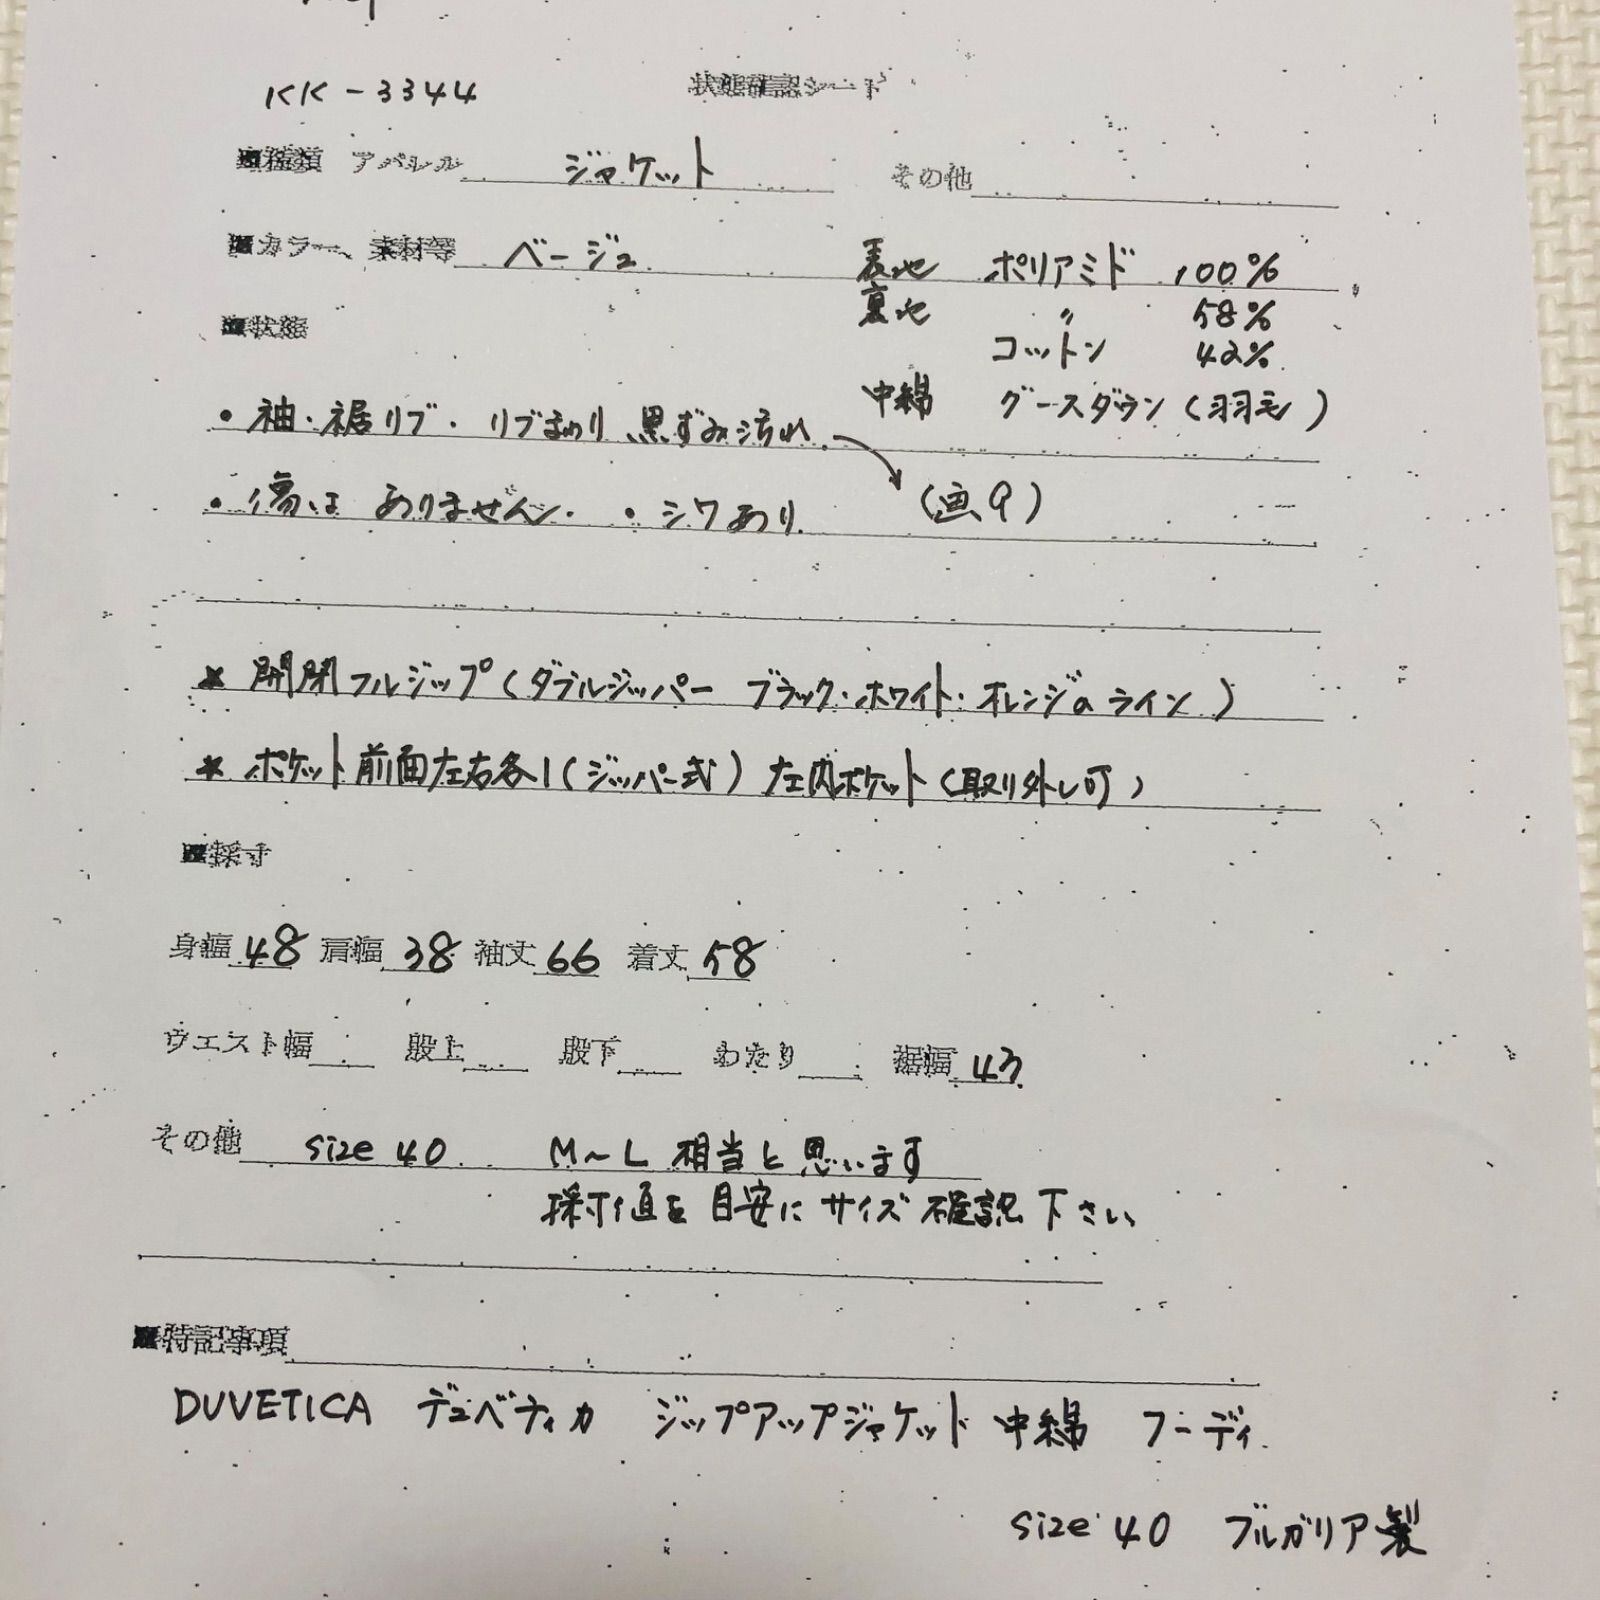 KK-3344 状態確認シート
■種類 アパレル ジャケット その他
■カラー、素材等 ベージュ 表地 ポリアミド 100%
裏地 〃 58%
■状態
コットン 42%
中綿 グースダウン(羽毛)
・袖・裾リブ・リブまわり 黒ずみ汚れ
・傷は ありません・ ・シワあり (画9)
* 開閉フルジップ(ダブルジッパー ブラック・ホワイト・オレンジのライン)
* ポケット前面左右各1(ジッパー式) 左内ポケット(取り外し可)
■採寸
身幅 48 肩幅 38 袖丈 66 着丈 58
ウエスト幅 股上 股下 わたり 裾幅 43
その他 size 40 M~L 相当と思います
採寸値を目安にサイズ確認下さい
■特記事項
DUVETICA デュベティカ ジップアップジャケット 中綿 フーディ
size 40 ブルガリア製